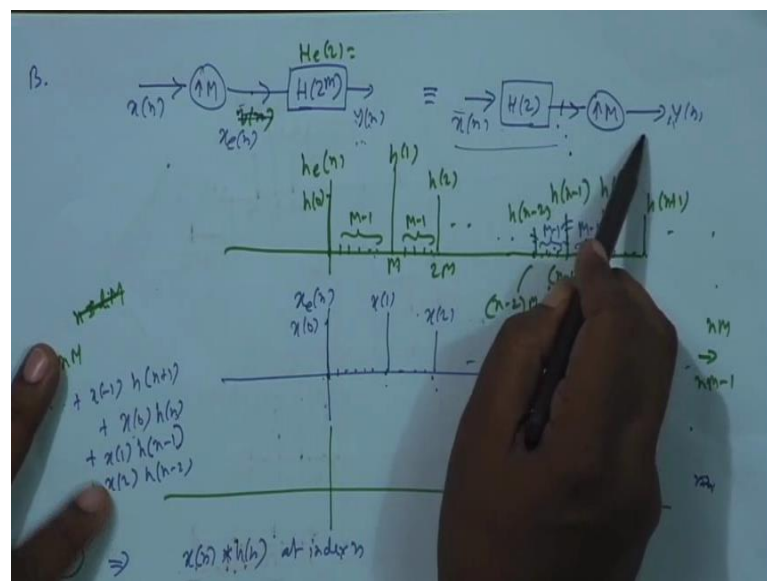 B.
x(n) ↑M xe(n) He(z)= H(z^M) y(n) ≡ x(n) H(z) ↑M y(n)
he(n)
h(0) h(1) h(2) .. h(n-2) h(n-1) h(n+1)
M-1 M-1 .. M-1
M 2M (n-2)M
xe(n)
x(0) x(1) x(2)
nM
nM
+ x(-1) h(n+1)
+ x(0) h(n)
+ x(1) h(n-1)
x(2) h(n-2)
⇒ x(n) * h(n) at index n